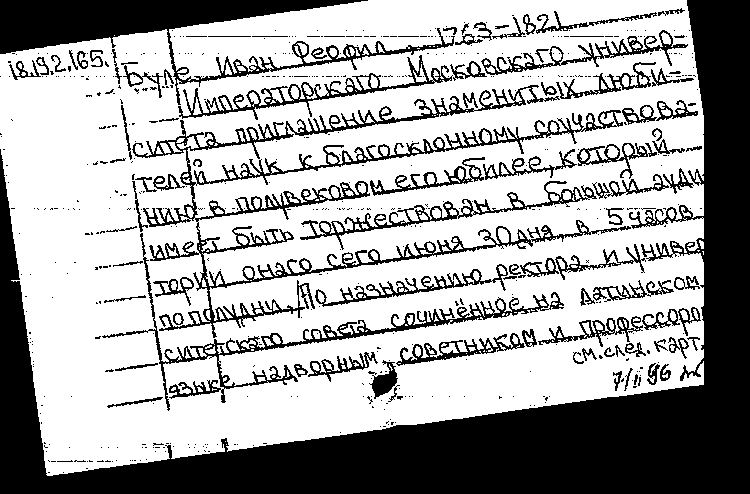 18.19.2.165.
Буле, Иван Феофил, 1763-1821
Императорскаго Московскаго универ-
ситета приглашение знаменитых люби-
телей наук к благосклонному соучаствова-
нию в полувековом его юбилее, который
имеет быть торжествован в большой ауди
тории онаго сего июня 30 дня, в 5 часов
пополудни./По назначению ректора и универ
ситетскаго совета сочинённое на латинском
языке надворным советником и профессором
см. след. карт.
7/II 96